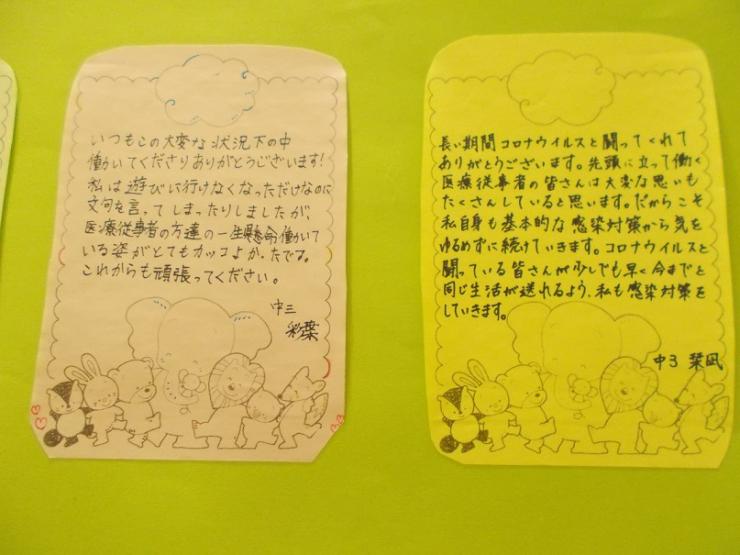 いつもこの大変な状況下の中
働いてくださりありがとうございます!
私は遊びに行けなくなっただけなのに
文句を言ってしまったりしましたが、
医療従事者の方達の一生懸命働いて
いる姿がとてもカッコよかったです。
これからも頑張ってください。
中三
彩葉
長い期間コロナウイルスと闘ってくれて
ありがとうございます。先頭に立って働く
医療従事者の皆さんは大変な思いも
たくさんしていると思います。だからこそ
私自身も基本的な感染対策から気を
ゆるめずに続けていきます。コロナウイルスと
闘っている皆さんが少しでも早く今までと
同じ生活が送れるよう、私も感染対策を
していきます。
中3 栞凪